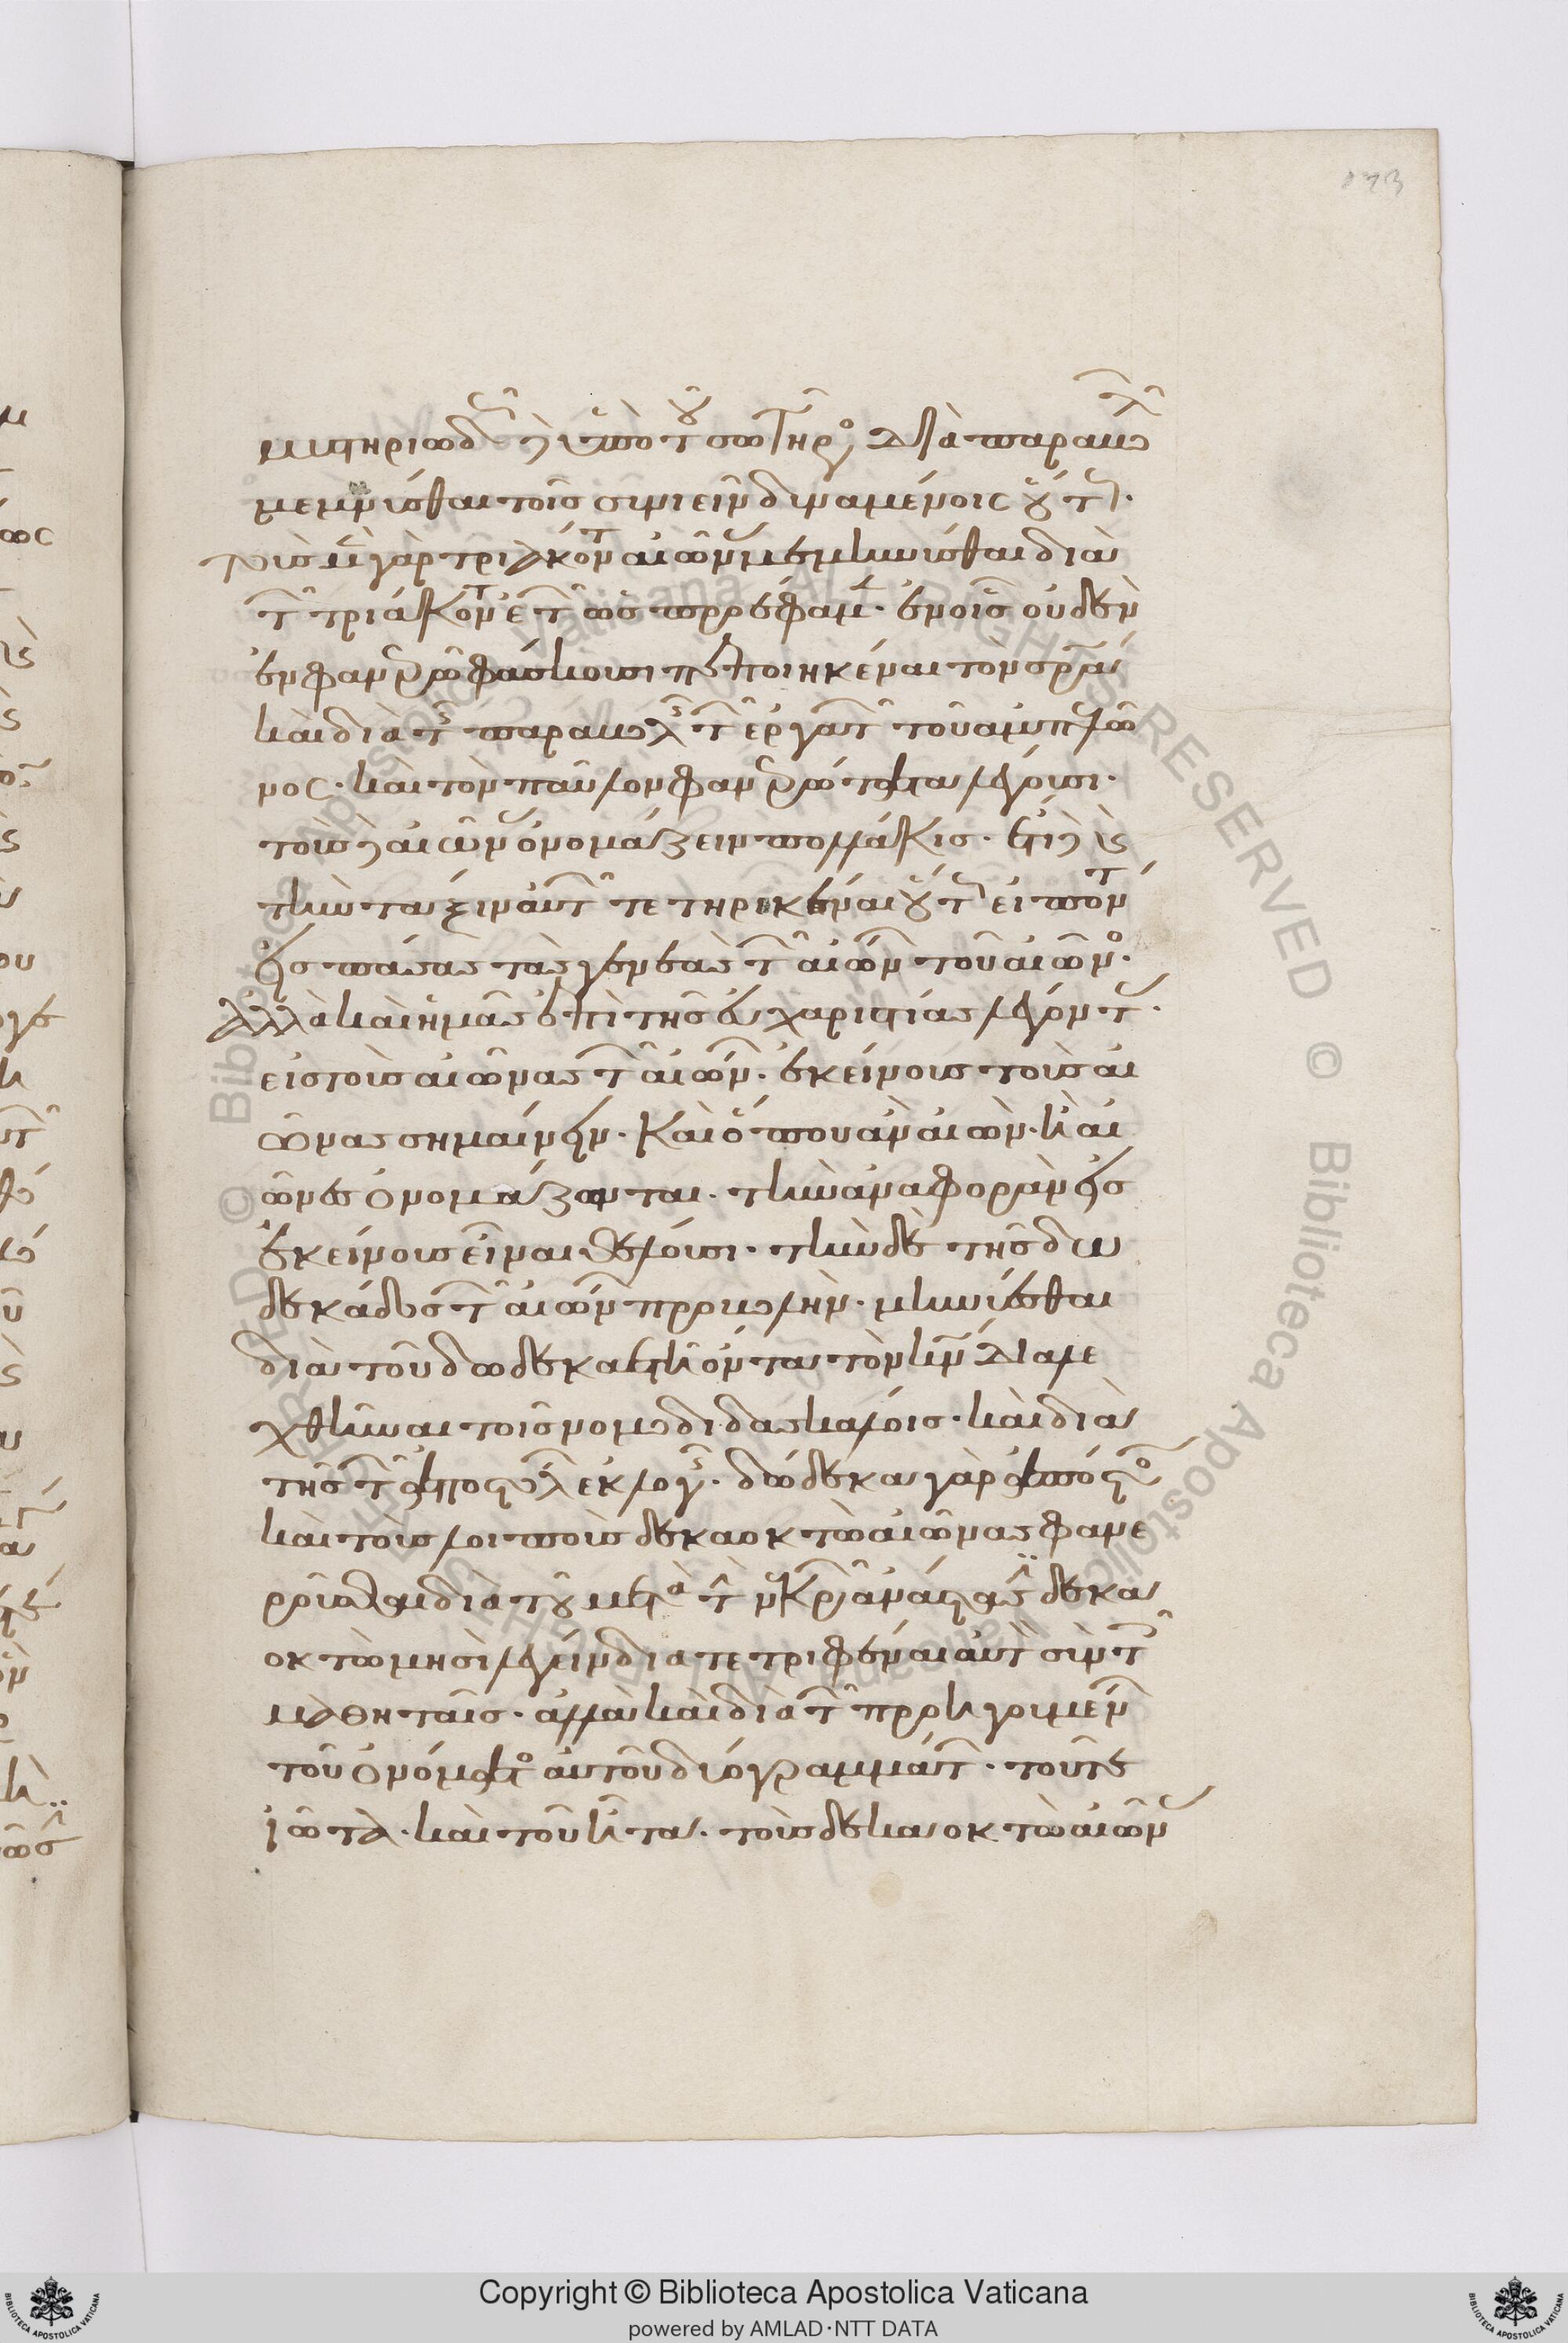 173
μυστηριωδῶς δὲ ὑπὸ τοῦ σωτῆρος διὰ παραβολῶν
μεμηνύσθαι τοῖς συνιεῖν δυναμένοις οὕτως.
τοὺς μὲν γὰρ τριάκοντα αἰῶνας μεμηνύσθαι διὰ
τῶν τριάκοντα ἐτῶν ὡς προέφαμεν. ἐν οἷς οὐδὲν
ἐν φανερῶ φάσκουσι πεποιηκέναι τὸν σρᾶ
καὶ διὰ τῆς παραβολῆς τῶν ἐργατῶν τοῦ ἀμπελῶ
νος. καὶ τὸν παῦλον φανερώτατα λέγουσι.
τοὺς δὲ αἰῶνας ὀνομάζειν πολλάκις. ἔτι δὲ καὶ
τὴν τάξιν αὐτῶν τετηρηκέναι οὕτως εἰπόντα
εἰς πάσας τὰς γενεὰς τῶν αἰώνων τοῦ αἰῶνος.
ἀλλὰ καὶ ἡμᾶς ἐπὶ τῆς εὐχαριστίας λέγοντας.
εἰς τοὺς αἰῶνας τῶν αἰώνων. ἐκείνους τοὺς αἰ
ῶνας σημαίνειν. καὶ ὅπου ἂν αἰὼν. ἢ αἰ
ῶνες ὀνομάζωνται. τὴν ἀναφορὰν εἰς
ἐκείνους εἶναι θέλουσι. τὴν δὲ τῆς δω
δεκάδος τῶν αἰώνων προβολὴν. μηνύεσθαι
διὰ τοῦ δωδεκαετῆ ὄντα τὸν κν̄ διαλε
χθῆναι τοῖς νομοδιδασκάλοις. καὶ διὰ
τῆς τῶν ἀποστόλων ἐκλογῆς. δώδεκα γὰρ ἀπόστολοι
καὶ τοὺς λοιποὺς δεκαοκτὼ αἰῶνας φανε
ροῦσθαι διὰ τοῦ μετὰ τὴν νεκρῶν ἀνάστασιν δεκα
οκτὼ μησὶ λέγειν διατετριφέναι αὐτὸν σὺν τοῖς
μαθηταῖς. ἀλλὰ καὶ διὰ τῶν προηγουμένων
τοῦ ὀνόματος αὐτοῦ δύο γραμμάτων. τοῦ τε
ἰῶτα. καὶ τοῦ ἦτα. τοὺς δεκαοκτὼ αἰῶνας
Copyright © Biblioteca Apostolica Vaticana
powered by AMLAD·NTT DATA